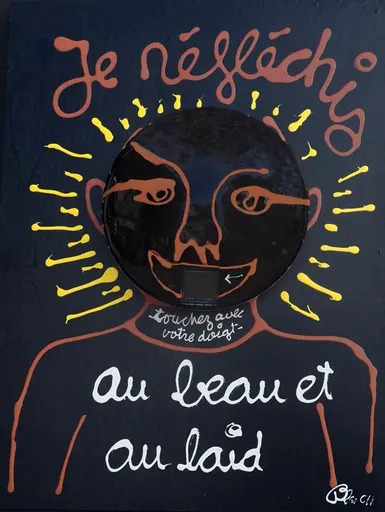 Je réfléchis
touchez avec
votre doigt
au beau et
au laid